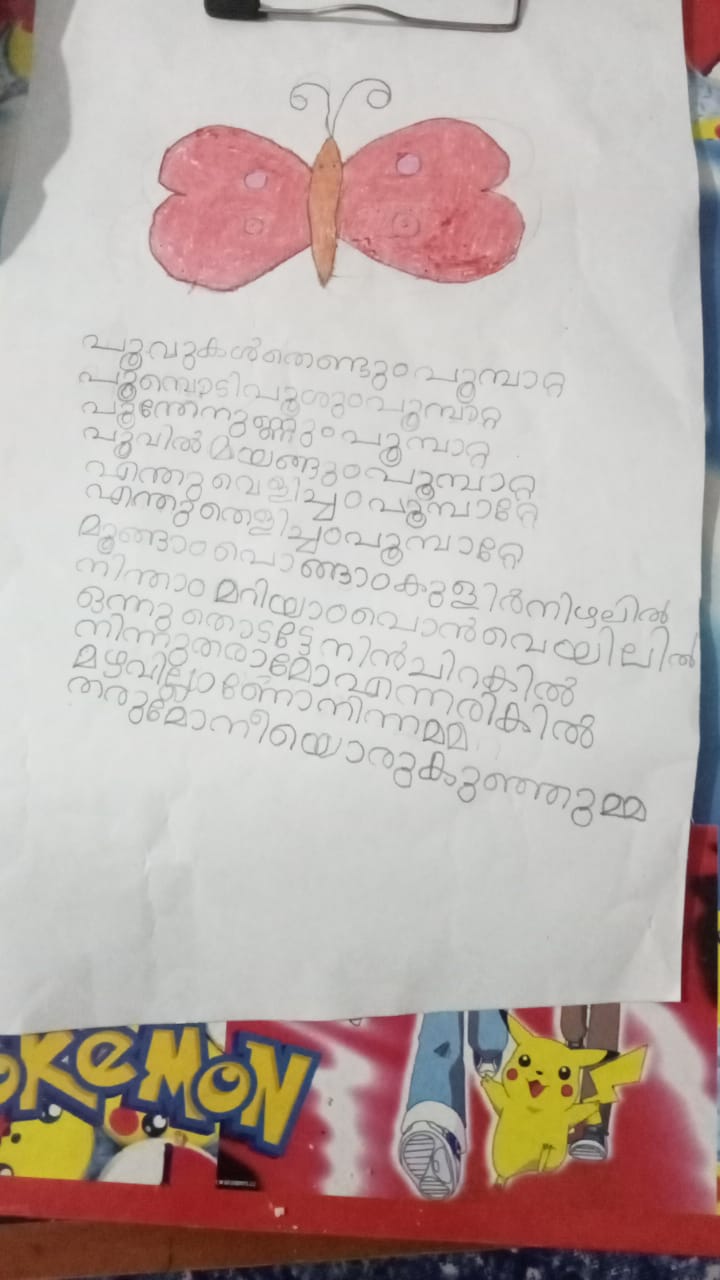 പൂവുകൾതെണ്ടും പൂമ്പാറ്റ
പൂമ്പൊടിപൂശും പൂമ്പാറ്റ
പൂന്തേനുണ്ണും പൂമ്പാറ്റ
പൂവിൽ മയങ്ങും പൂമ്പാറ്റ
എന്തു വെളിച്ചം പൂമ്പാറ്റേ
എന്തു തെളിച്ചം പൂമ്പാറ്റേ
മുങ്ങാം പൊങ്ങാം കുളിർനിഴലിൽ
നിന്താം മറിയാം പൊൻവെയിലിൽ
ഒന്നു തൊടട്ടേ നിൻചിറകിൽ
നിന്നുതരാമോ എന്നരികിൽ
മഴവില്ലാണോ നിന്നമ്മ
തരുമോനീയൊരുകുഞ്ഞുമ്മ
POKEMON